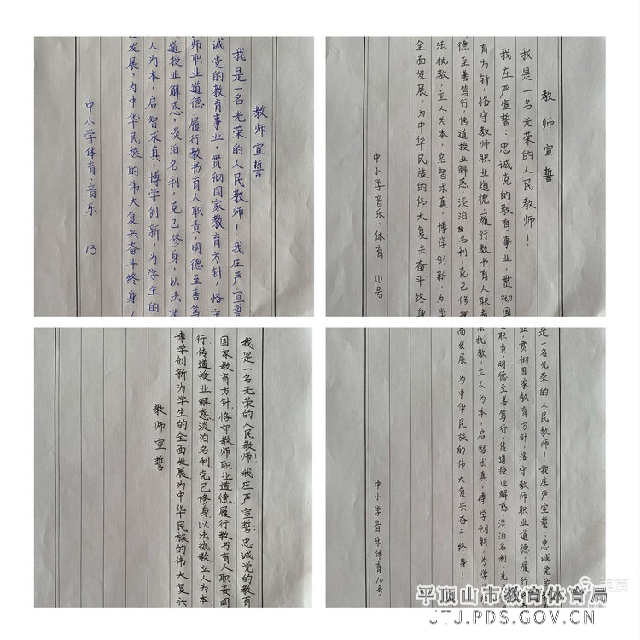 教师宣誓
我是一名光荣的人民教师！我庄严宣誓
诚党的教育事业，贯彻国家教育方针，恪守
师职业道德，履行教书育人职责，明德至善笃
道授业解惑，淡泊名利，克己修身，以法
人为本，启智求真，博学创新，为学生的
发展，为中华民族的伟大复兴奋斗终身
中小学体育、音乐 13
教师宣誓
我是一名光荣的人民教师！
我庄严宣誓：忠诚党的教育事业，贯彻国
育方针，恪守教师职业道德，履行教书育人职
德至善笃行，传道授业解惑，淡泊名利，克己修
法执教，立人为本，启智求真，博学创新，为学
全面发展，为中华民族的伟大复兴奋斗终身
中小学音乐体育 11号
我是一名光荣的人民教师！我庄严宣誓：忠诚党的教育
国家教育方针，恪守教师职业道德，履行教书育人职责，明
行，传道授业解惑，淡泊名利，克己修身，以法执教，立人为本
博学创新，为学生的全面发展，为中华民族的伟大复兴
教师宣誓
是一名光荣的人民教师！我庄严宣誓：忠诚党
业，贯彻国家教育方针，恪守教师职业道德，履行
职责，明德至善笃行，传道授业解惑，淡泊名利，克
法执教，立人为本，启智求真，博学创新，为学
面发展，为中华民族的伟大复兴奋斗终身
中小学音乐体育10号
平顶山市教育体育局
JTJ.PDS.GOV.CN